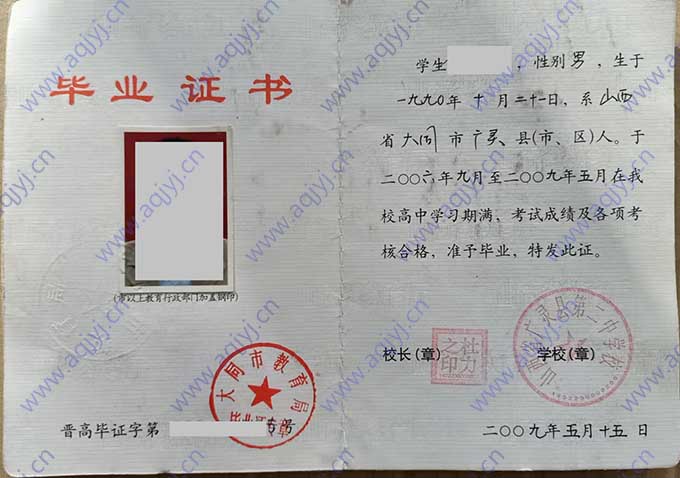 毕业证书
(市以上教育行政部门加盖钢印)
大同市教育局
晋高毕证字第 号
学生 ，性别男，生于
一九九〇年十月二十一日，系山西
省大同市广灵县(市、区)人。于
二〇〇六年九月至二〇〇九年五月在我
校高中学习期满，考试成绩及各项考
核合格，准予毕业，特发此证。
校长(章)
杜力之印
学校(章)
山西省广灵县第二中学校
二〇〇九年五月十五日
www.aqjyj.cn